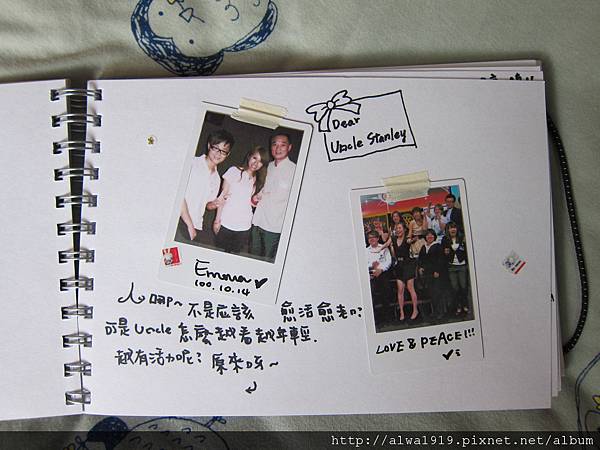 Dear
Uncle Stanley
Emma
100.10.14
LOVE & PEACE!!
人啊~不是應該 愈活愈老?
可是 Uncle 怎麼越看越年輕.
越有活力呢? 原來呀~
http://alwa1919.pixnet.net/album